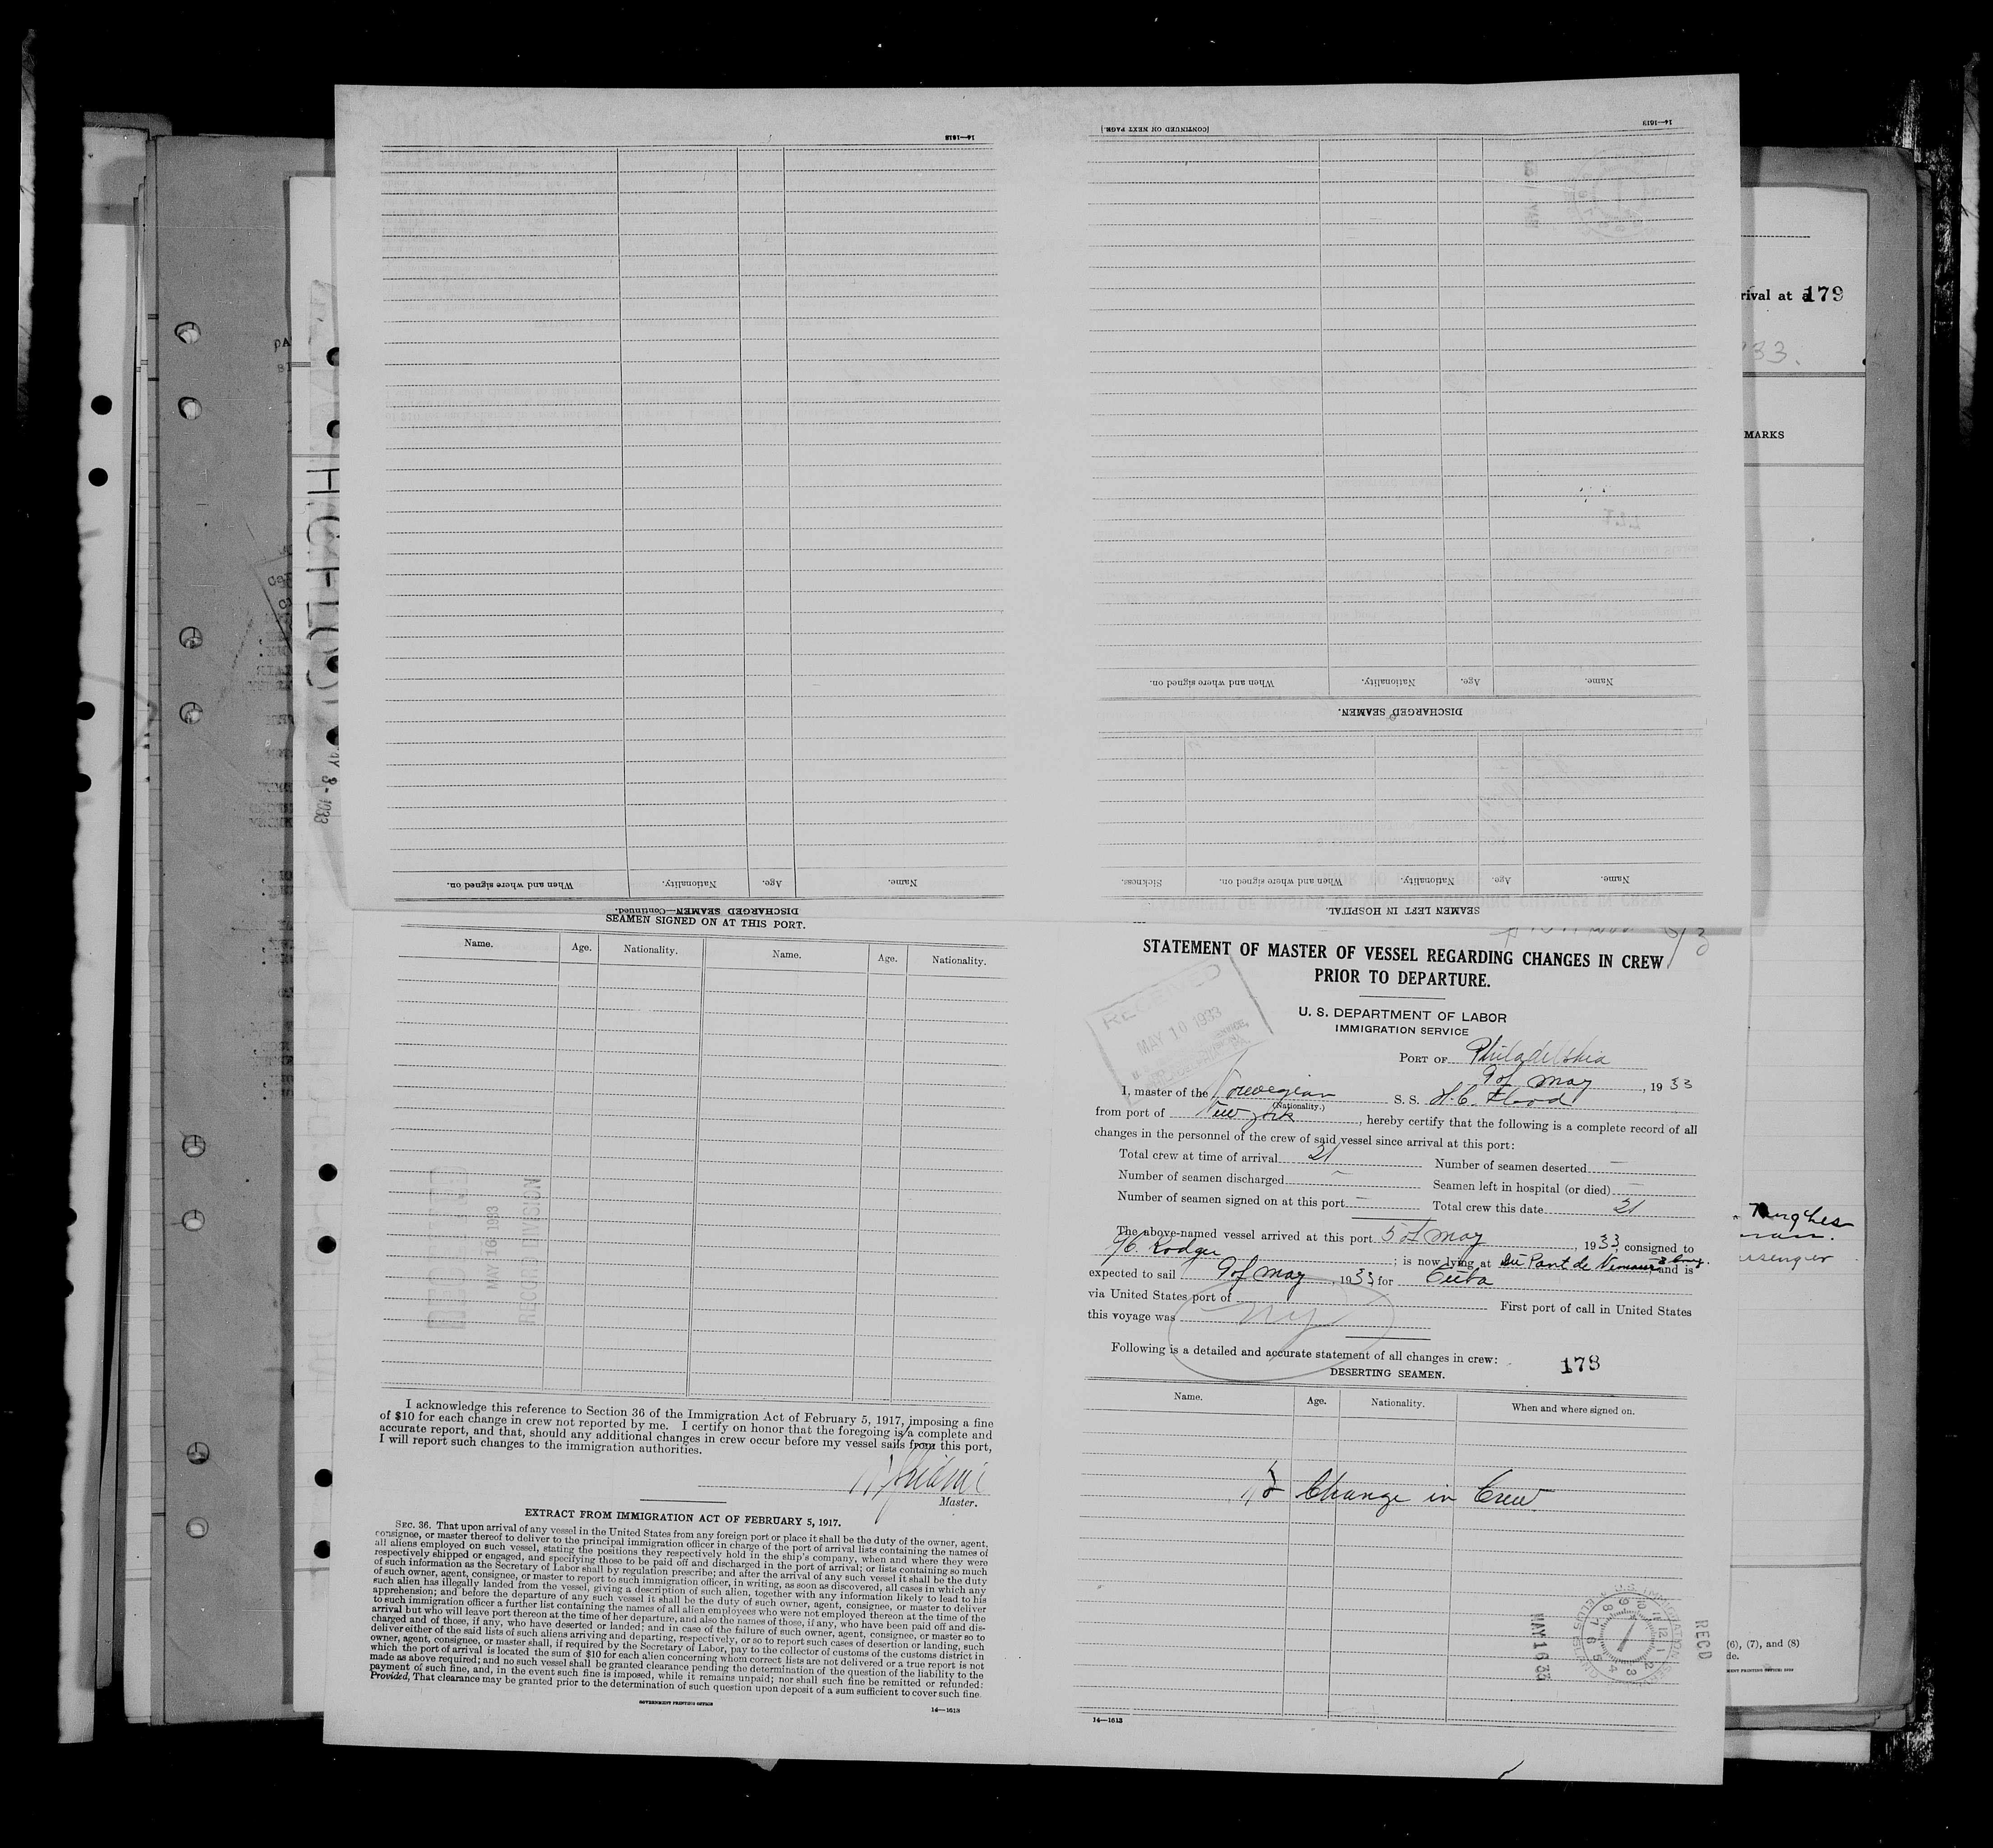 14—1613
Name. Age. Nationality. When and where signed on.
DISCHARGED SEAMEN—Continued.
14—1613
(CONTINUED ON NEXT PAGE.)
Name. Age. Nationality. When and where signed on.
DISCHARGED SEAMEN.
Name. Age. Nationality. When and where signed on. Sickness.
SEAMEN LEFT IN HOSPITAL.
rival at
179
33.
MARKS
SEAMEN SIGNED ON AT THIS PORT.
Name. Age. Nationality. Name. Age. Nationality.
MAY 16 1933
RECORD DIVISION
I acknowledge this reference to Section 36 of the Immigration Act of February 5, 1917, imposing a fine
of $10 for each change in crew not reported by me. I certify on honor that the foregoing is a complete and
accurate report, and that, should any additional changes in crew occur before my vessel sails from this port,
I will report such changes to the immigration authorities.
Master.
EXTRACT FROM IMMIGRATION ACT OF FEBRUARY 5, 1917.
SEC. 36. That upon arrival of any vessel in the United States from any foreign port or place it shall be the duty of the owner, agent,
consignee, or master thereof to deliver to the principal immigration officer in charge of the port of arrival lists containing the names of
all aliens employed on such vessel, stating the positions they respectively hold in the ship's company, when and where they were
respectively shipped or engaged, and specifying those to be paid off and discharged in the port of arrival; or lists containing so much
of such information as the Secretary of Labor shall by regulation prescribe; and after the arrival of any such vessel it shall be the duty
of such owner, agent, consignee, or master to report to such immigration officer, in writing, as soon as discovered, all cases in which any
such alien has illegally landed from the vessel, giving a description of such alien, together with any information likely to lead to his
apprehension; and before the departure of any such vessel it shall be the duty of such owner, agent, consignee, or master to deliver
to such immigration officer a further list containing the names of all alien employees who were not employed thereon at the time of the
arrival but who will leave port thereon at the time of her departure, and also the names of those, if any, who have been paid off and dis-
charged and of those, if any, who have deserted or landed; and in case of the failure of such owner, agent, consignee, or master so to
deliver either of the said lists of such aliens arriving and departing, respectively, or so to report such cases of desertion or landing, such
owner, agent, consignee, or master shall, if required by the Secretary of Labor, pay to the collector of customs of the customs district in
which the port of arrival is located the sum of $10 for each alien concerning whom correct lists are not delivered or a true report is not
made as above required; and no such vessel shall be granted clearance pending the determination of the question of the liability to the
payment of such fine, and, in the event such fine is imposed, while it remains unpaid; nor shall such fine be remitted or refunded:
Provided, That clearance may be granted prior to the determination of such question upon deposit of a sum sufficient to cover such fine.
GOVERNMENT PRINTING OFFICE
14—1613
STATEMENT OF MASTER OF VESSEL REGARDING CHANGES IN CREW
PRIOR TO DEPARTURE.
RECEIVED
MAY 10 1933
U. S. DEPARTMENT OF LABOR
IMMIGRATION SERVICE
PORT OF Philadelphia
9 of May, 1933
I, master of the Norwegian S. S. H.C. Flood
(Nationality.)
from port of New York, hereby certify that the following is a complete record of all
changes in the personnel of the crew of said vessel since arrival at this port:
Total crew at time of arrival 21 Number of seamen deserted —
Number of seamen discharged — Seamen left in hospital (or died) —
Number of seamen signed on at this port — Total crew this date 21
The above-named vessel arrived at this port 5 of May, 1933, consigned to
; is now lying at Du Pont de Nemours, and is
expected to sail 9 of May, 1933 for Cuba
via United States port of First port of call in United States
this voyage was NY
Following is a detailed and accurate statement of all changes in crew:
178
DESERTING SEAMEN.
Name. Age. Nationality. When and where signed on.
No Change in Crew
MAY 16 33
U.S. IMMIGRATION SERVICE
RECD
14—1613
Hughes
(6), (7), and (8)